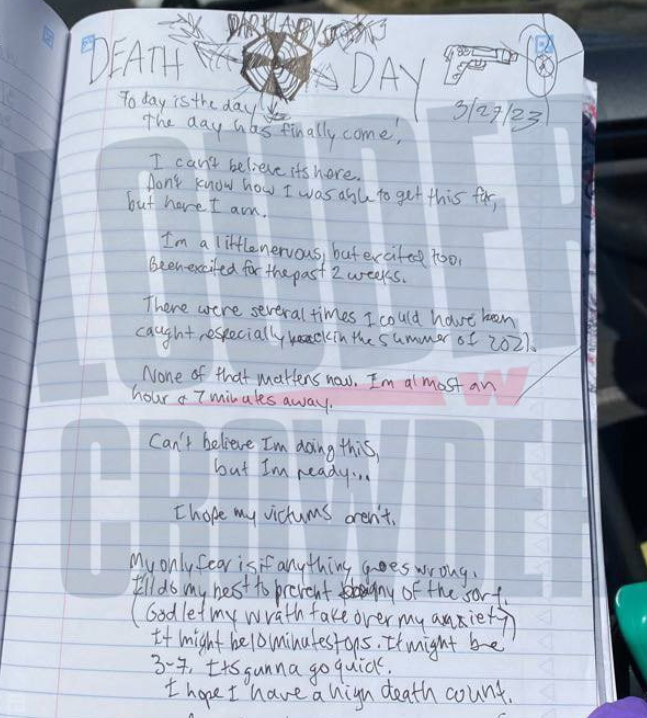 DARK ABYSS
DEATH DAY
3/27/23
Today is the day
The day has finally come!
I can't believe its here.
Don't know how I was able to get this far,
but here I am.
Im a little nervous, but excited too.
Been excited for the past 2 weeks.
There were several times I could have been
caught, especially back in the summer of 2021.
None of that matters now. Im almost an
hour & 7 minutes away.
Can't believe Im doing this,
but Im ready...
I hope my victums aren't.
My only fear is if anything goes wrong.
I'll do my best to prevent any of the sort.
(God let my wrath take over my anxiety)
It might be 10 minutes tops. It might be
3-7. Its gunna go quick.
I hope I have a high death count.
LOUDER
W
CROWDER